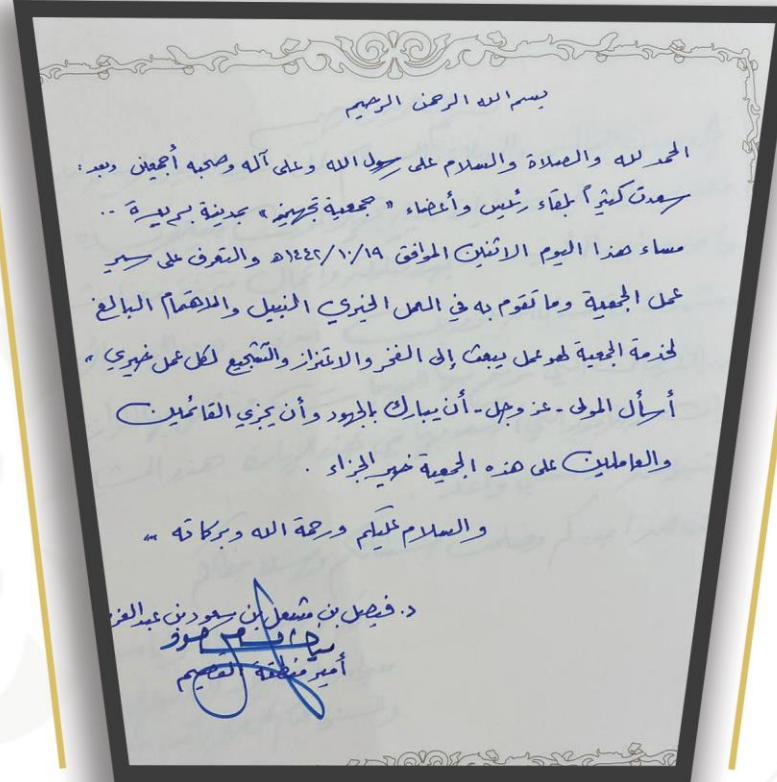 بسم الله الرحمن الرحيم
الحمد لله والصلاة والسلام على رسول الله وعلى آله وصحبه أجمعين وبعد :
سعدت كثيراً بلقاء رئيس وأعضاء " جمعية تجهيز " بمدينة بريدة ..
مساء هذا اليوم الاثنين الموافق ١٤٤٢/١٠/١٩هـ والتعرف على سير
عمل الجمعية وما تقوم به في العمل الخيري النبيل والاهتمام البالغ
لخدمة الجمعية لهو عمل يبعث إلى الفخر والاعتزاز والتشجيع لكل عمل خيري ،،
أسأل المولى - عز وجل - أن يبارك بالجهود وأن يجزي القائمين
والعاملين على هذه الجمعية خير الجزاء .
والسلام عليكم ورحمة الله وبركاته ،،،
د. فيصل بن مشعل بن سعود بن عبدالعز
أمير منطقة القصيم